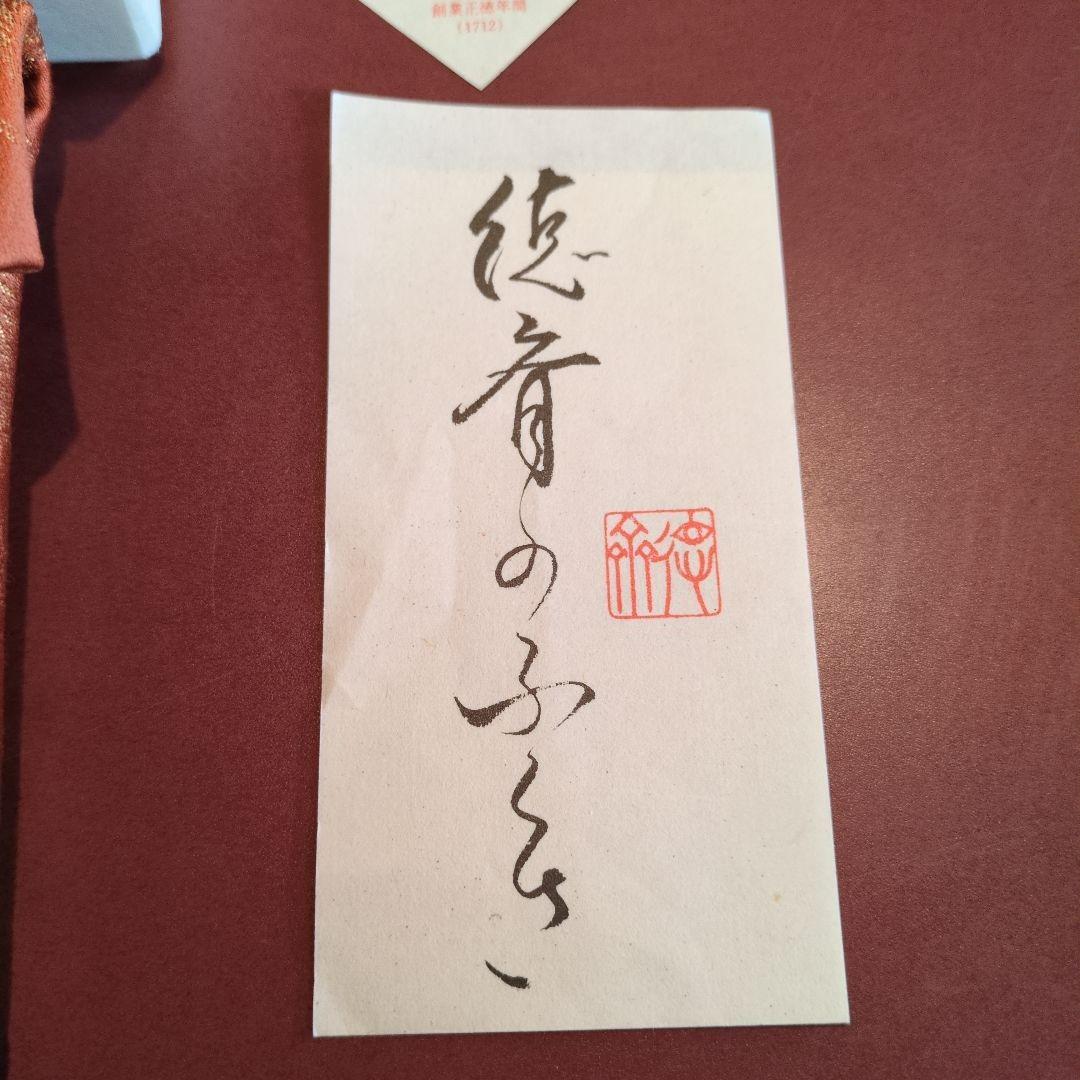 創業正徳年間
(1712)
徳斎のふくさ
徳斎